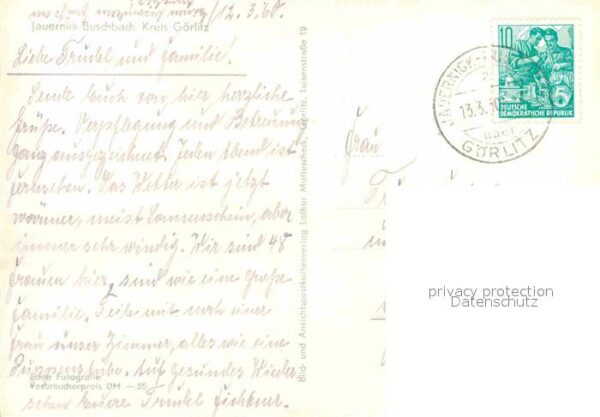 12.3.60.
Jauernick-Buschbach Kreis Görlitz
Liebe Trudel und Familie.
Sende Euch von hier herzliche
Grüße. Verpflegung und Betreuung
ganz ausgezeichnet. Jeden Abend ist
Fernsehen. Das Wetter ist jetzt
wärmer, meist Sonnenschein, aber
immer sehr windig. Wir sind 48
Frauen hier, sind wie eine große
Familie. Teile mit noch einer
Frau unser Zimmer, alles wie eine
Puppenstube. Auf gesundes Wieder-
sehen Eure Trudel Fichtner.
Echte Fotografie
Verbraucherpreis DM —.25
Bild- und Ansichtspostkartenverlag Lothar Mattuscheck, Görlitz, Luisenstraße 19
10
DEUTSCHE
DEMOKRATISCHE REPUBLIK
JAUERNICK-
13.3.60
über
GÖRLITZ
Frau
privacy protection
Datenschutz